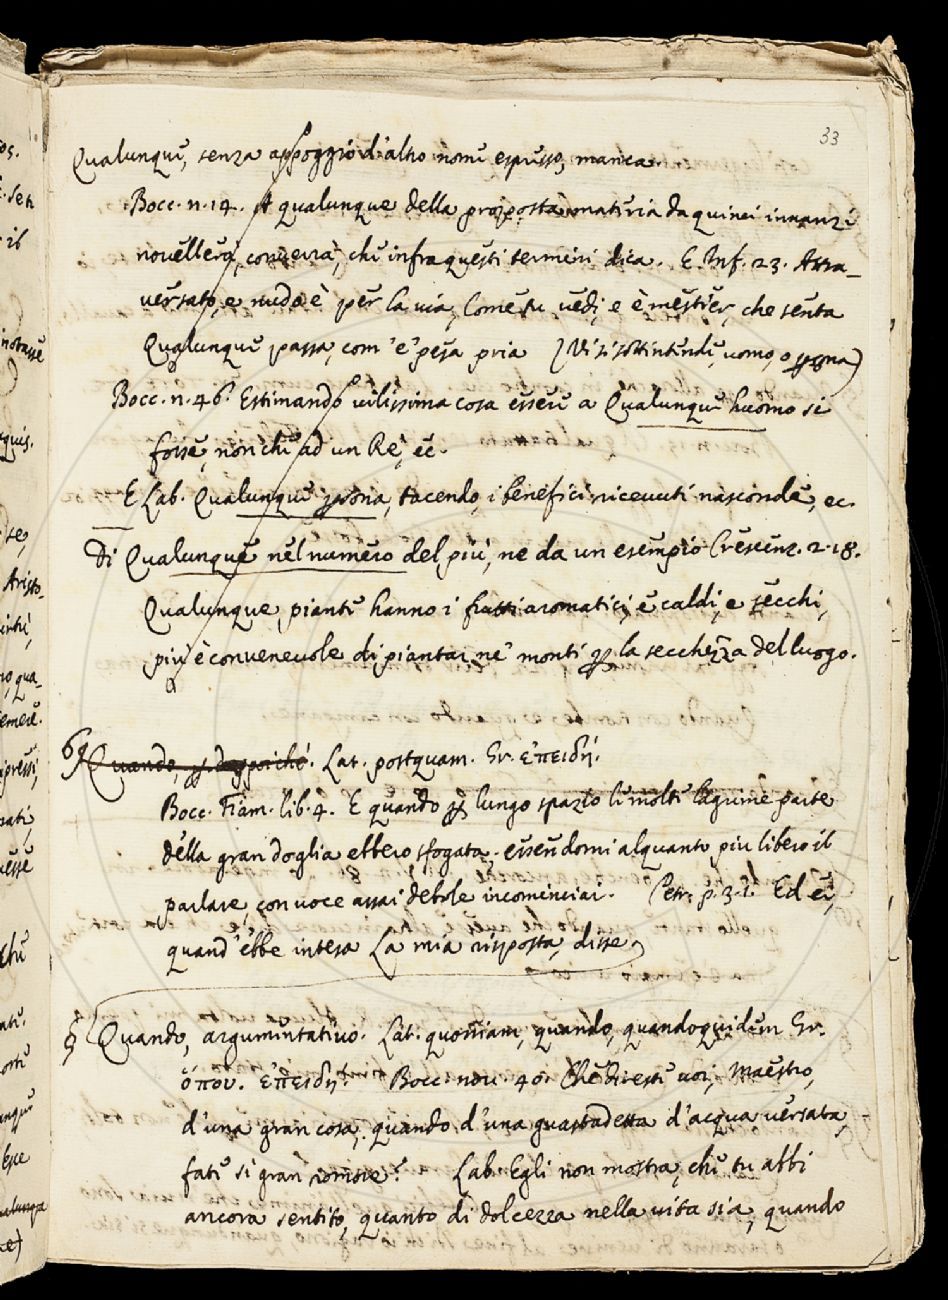 33
Qualunque, senza appoggio d'altro nome espresso, manca.
Bocc. n. 14. A qualunque della proposta materia da quinci innanzi
novellerà, converrà, che infra questi termini dica. E Inf. 23. Attra_
versato, e nudo è per la via, Come tu vedi, e è mestier, che senta
Qualunque passa, com'e' pesa pria (Vi si sottintende, uomo, o persona)
Bocc. n. 46. Estimando vilissima cosa essere a Qualunque huomo si
fosse, non che ad un Re, ec.
E Lab. Qualunque persona, tacendo, i benefici ricevuti nasconde, ec.
Di Qualunque nel numero del più, ne da un esempio Crescenz. 2. 18.
Qualunque piante hanno i frutti aromatici, e caldi, e secchi,
più è convenevole di piantar ne' monti per la secchezza del luogo.
Quando, per dappoiché. Lat. postquam. Gr. ἐπειδή.
Bocc. Fiam. lib. 4. E quando per lungo spazio le molte lagrime parte
della gran doglia ebbero sfogata, essendomi alquanto piu libero il
parlare, con voce assai debole incominciai. Petr. p. 3. 1. Ed ei,
quand'ebbe intesa La mia risposta, disse
§ Quando, argumentativo. Lat. quoniam, quando, quandoquidem Gr.
ὅπου. ἐπειδή. Bocc. nov. 40. Che direste voi, Maestro,
d'una gran cosa, quando d'una guastadetta d'acqua versata,
fate sì gran romore? Lab. Egli non mostra, che tu abbi
ancora sentito, quanto di dolcezza nella vita sia, quando